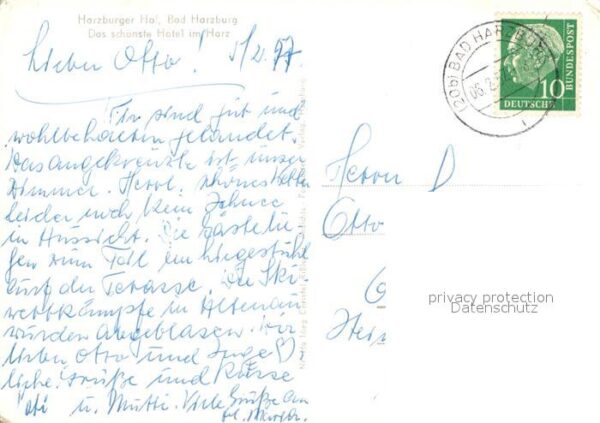 Harzburger Hof, Bad Harzburg
Das schönste Hotel im Harz
Lieber Otto! 5/2.57
Wir sind gut und
wohlbehalten gelandet.
Das angekreuzte ist unser
Zimmer. Herrl. schönes Wetter
leider noch kein Schnee
in Aussicht. Die Gäste lie-
gen zum Teil im Liegestuhl
auf der Terasse. Die Ski
wettkämpfe in Altenau
wurden abgeblasen. Wir
lieben Otto und Inge
liche Grüße und Küsse
u. Mutti. Viele Grüße an
Herrn D
Otto
(20b) BAD HARZBURG
06.2.5
10
DEUTSCHE
BUNDESPOST
privacy protection
Datenschutz